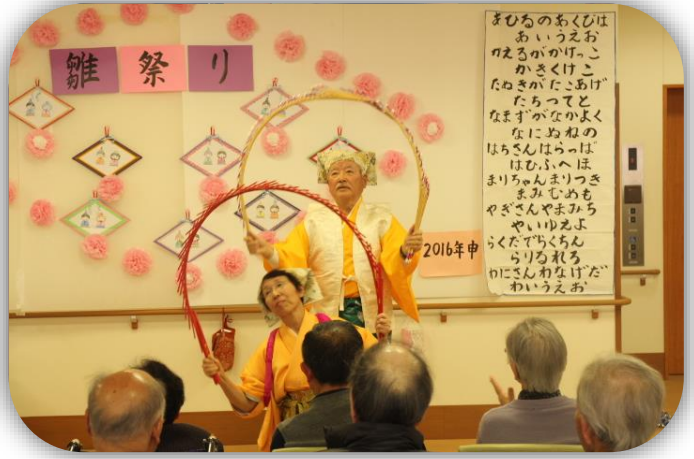 雛祭り
2016年申
あひるのあくびは
あいうえお
かえるがかけっこ
かきくけこ
たぬきがたこあげ
たちつてと
なまずがなかよく
なにぬねの
はちさんはらっぱ
はひふへほ
まりちゃんまりつき
まみむめも
やぎさんやまみち
やいゆえよ
らくだでらくちん
らりるれろ
わにさんわなげだ
わいうえお